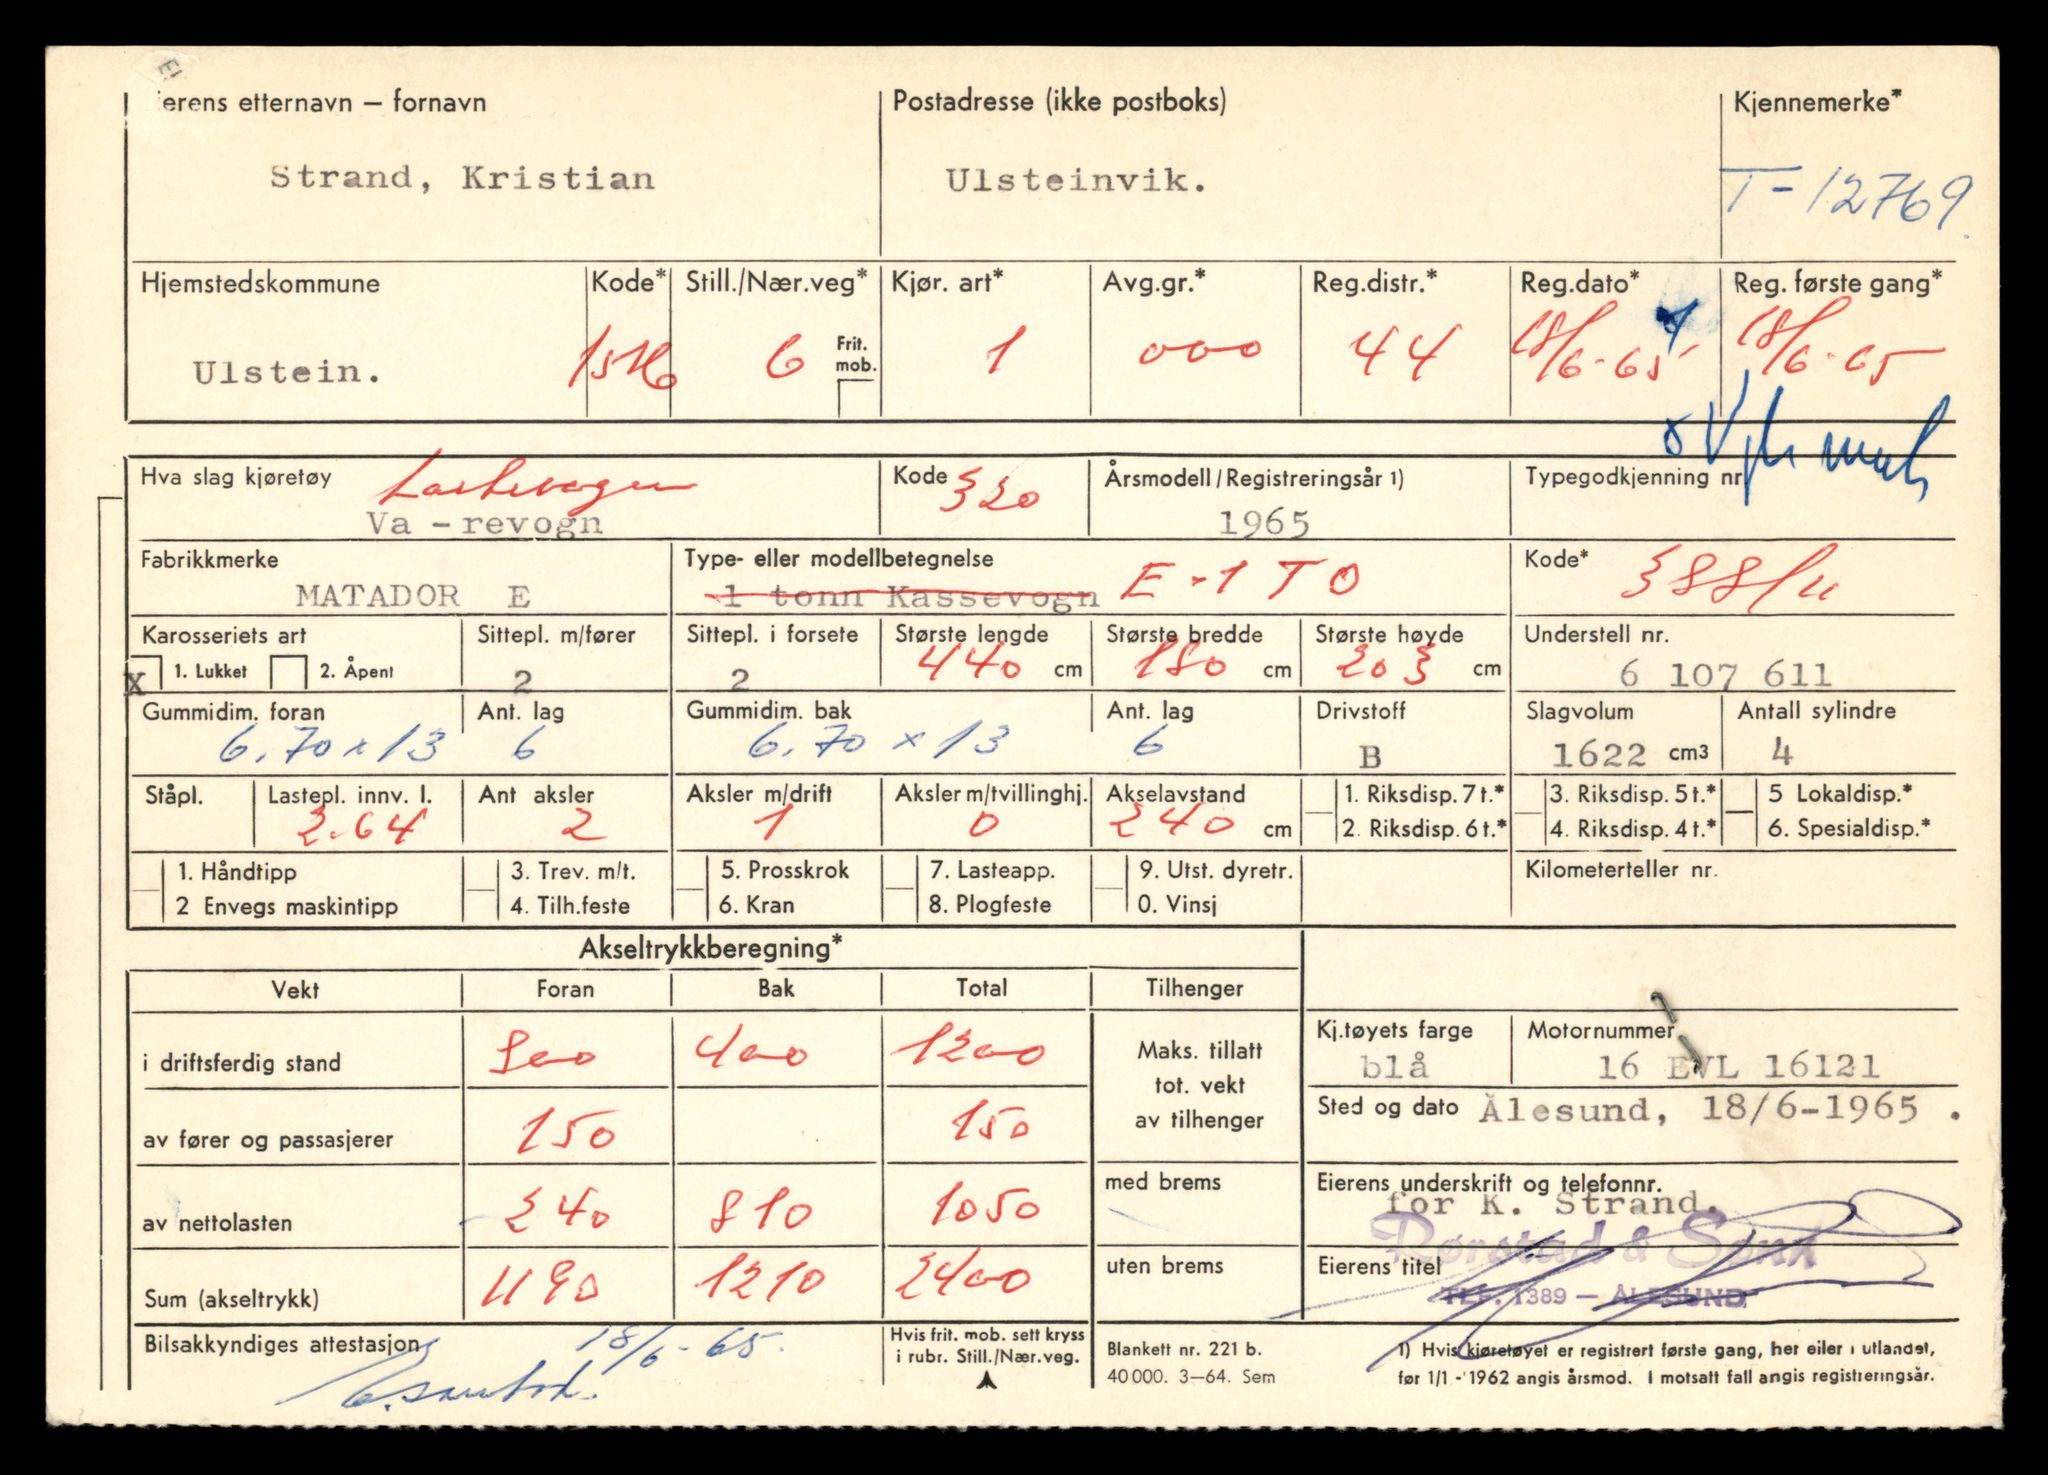 Eierens etternavn – fornavn Postadresse (ikke postboks) Kjennemerke*
Strand, Kristian Ulsteinvik. T-12769
Hjemstedskommune Kode* Still./Nær.veg* Kjør. art* Avg.gr.* Reg.distr.* Reg.dato* Reg. første gang*
Ulstein. 1516 6 Frit. mob. 1 000 44 18/6-65 18/6-65
Hva slag kjøretøy Lastevogn Kode 320 Årsmodell/Registreringsår 1) Typegodkjenning nr.
Va-revogn 1965
Fabrikkmerke Type- eller modellbetegnelse Kode*
MATADOR E 1 tonn Kassevogn E-1 TO 388/11
Karosseriets art Sittepl. m/fører Sittepl. i forsete Største lengde Største bredde Største høyde Understell nr.
X 1. Lukket 2. Åpent 2 2 440 cm 180 cm 203 cm 6 107 611
Gummidim. foran Ant. lag Gummidim. bak Ant. lag Drivstoff Slagvolum Antall sylindre
6.70 x 13 6 6.70 x 13 6 B 1622 cm3 4
Ståpl. Lastepl. innv. l. Ant aksler Aksler m/drift Aksler m/tvillinghj. Akselavstand 1. Riksdisp. 7 t.* 3. Riksdisp. 5 t.* 5 Lokaldisp.*
2.64 2 1 0 240 cm 2. Riksdisp. 6 t.* 4. Riksdisp. 4 t.* 6. Spesialdisp.*
1. Håndtipp 3. Trev. m/t. 5. Prosskrok 7. Lasteapp. 9. Utst. dyretr. Kilometerteller nr.
2 Envegs maskintipp 4. Tilh.feste 6. Kran 8. Plogfeste 0. Vinsj
Akseltrykkberegning*
Vekt Foran Bak Total Tilhenger
i driftsferdig stand 800 400 1200 Maks. tillatt tot. vekt av tilhenger
Kj.tøyets farge Motornummer
blå 16 EVL 16121
Sted og dato Ålesund, 18/6-1965 .
av fører og passasjerer 150 150
av nettolasten 240 810 1050 med brems
Eierens underskrift og telefonnr.
for K. Strand.
Rørstad & Sønn
Sum (akseltrykk) 1190 1210 2400 uten brems Eierens titel
TLF. 1389 — ÅLESUND
Bilsakkyndiges attestasjon 18/6-65.
Hvis frit. mob. sett kryss
i rubr. Still./Nær.veg.
Blankett nr. 221 b.
40 000. 3–64. Sem
1) Hvis kjøretøyet er registrert første gang, her eller i utlandet,
før 1/1 - 1962 angis årsmod. I motsatt fall angis registreringsår.